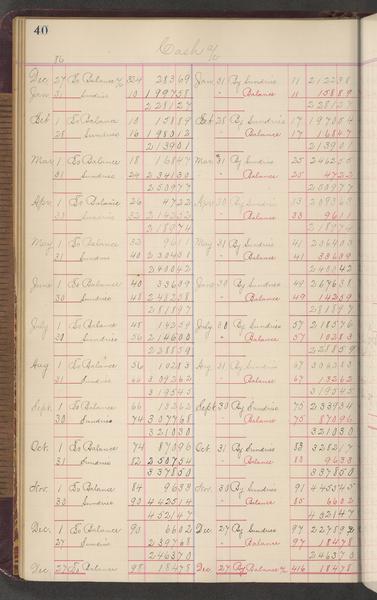 40
Cash a/c
86
Dec 27 To Balance a/c 324 28369 Jan 31 By Sundries 11 212238
Jan 31 " Sundries 10 199758 " " Balance 11 15889
228127 228127
Feb 1 To Balance 10 15889 Feb 28 By Sundries 17 197054
28 " Sundries 16 198012 " " Balance 17 16847
213901 213901
Mar 1 To Balance 18 16847 Mar 31 By Sundries 25 246255
31 " Sundries 24 234130 " " Balance 25 4722
250977 250977
Apr 1 To Balance 26 4722 Apr 30 By Sundries 33 209363
30 " Sundries 32 214252 " " Balance 33 9611
218974 218974
May 1 To Balance 32 9611 May 31 By Sundries 41 206403
31 " Sundries 40 230431 " " Balance 41 33639
240042 240042
June 1 To Balance 40 33639 June 30 By Sundries 49 267638
30 " Sundries 48 248258 " " Balance 49 14259
281897 281897
July 1 To Balance 48 14259 July 30 By Sundries 57 218576
30 " Sundries 56 214600 " " Balance 57 10283
228859 228859
Aug 1 To Balance 56 10283 Aug 31 By Sundries 67 306283
31 " Sundries 66 309262 " " Balance 67 13262
319545 319545
Sept 1 To Balance 66 13262 Sept 30 By Sundries 75 233934
30 " Sundries 74 307768 " " Balance 75 87096
321030 321030
Oct. 1 To Balance 74 87096 Oct. 31 By Sundries 83 328217
31 " Sundries 82 250754 " " Balance 83 9633
337850 337850
Nov. 1 To Balance 84 9633 Nov. 30 By Sundries 91 445545
30 " Sundries 90 442514 " " Balance 85 6602
452147 452147
Dec. 1 To Balance 90 6602 Dec 27 By Sundries 97 227892
27 " Sundries 96 239768 " " Balance 97 18478
246370 246370
Dec 27 To Balance 98 18478 Dec. 27 By Balance a/c 416 18478